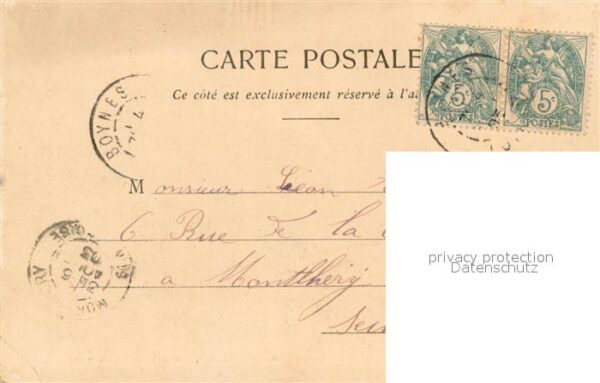 CARTE POSTALE
Ce côté est exclusivement réservé à l'a
5c 5c
POSTES POSTES
BOYNES
Monsieur Léon
6 Rue de la
a Montlhéry
Sein
privacy protection
Datenschutz